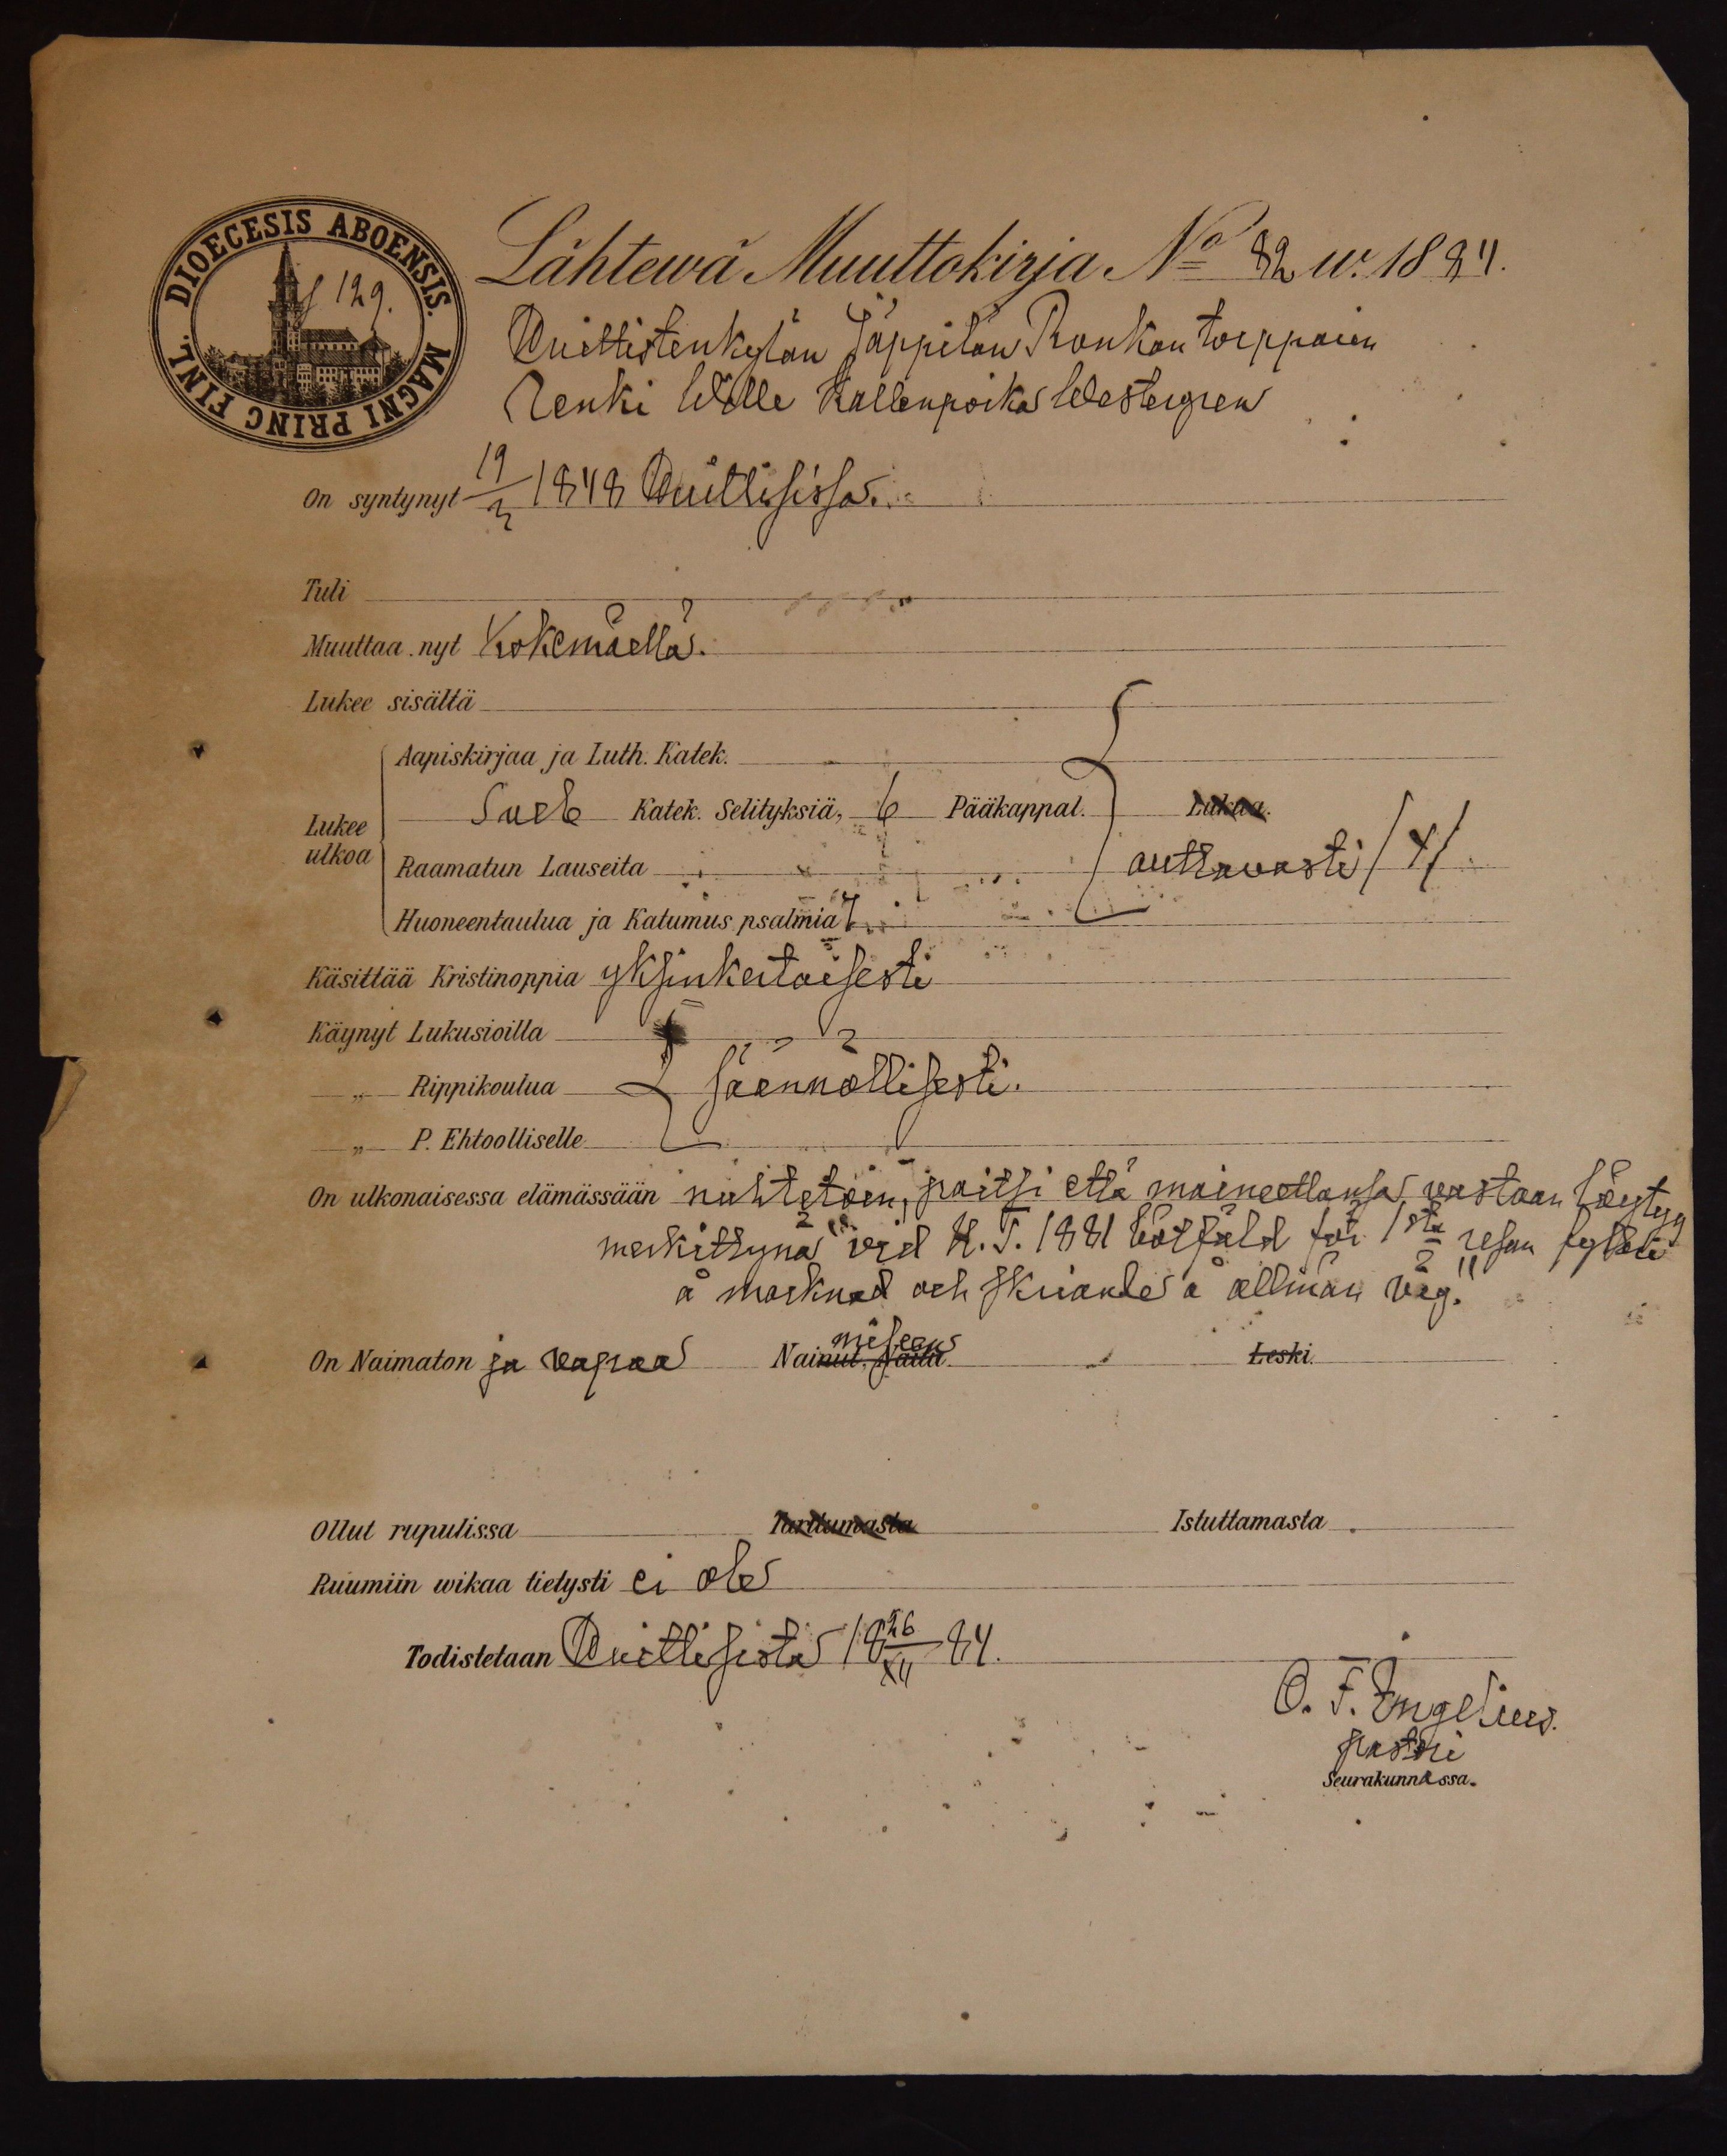 DIOECESIS ABOENSIS. MAGNI PRINC FINL.
f 129.
Lähtewä Muuttokirja No 82 w. 1884.
Huittistenkylän Jäppilän Ronkan torppain
Renki Wille Kallenpoika Westergren
On syntynyt 19/2 1848 Huittisissa.
Tuli
Muuttaa nyt Kokemäellä.
Lukee sisältä
Aapiskirjaa ja Luth. Katek.
Lukee ulkoa
Sveb Katek. Selityksiä, 6 Pääkappal. Lukua.
Raamatun Lauseita auttavasti /4/.
Huoneentaulua ja Katumus psalmia 7
Käsittää Kristinoppia yksinkertaisesti
Käynyt Lukusioilla
„ Rippikoulua säännöllisesti.
„ P. Ehtoolliselle
On ulkonaisessa elämässään nuhtetoin, paitsi että mainettansa vastaan löytyy
merkittynä "vid H.T. 1881 bötfäld för 1sta resan fylleri
å marknad och skriande å allmän väg."
On Naimaton ja vapaa Nainut. Naitu. Leski.
miseen
Ollut rupulissa Tarttumasta Istuttamasta
Ruumiin wikaa tietysti ei ole
Todistetaan Huittisista 18 26/XII 84.
O. F. Ingelius.
pastori
Seurakunnassa.